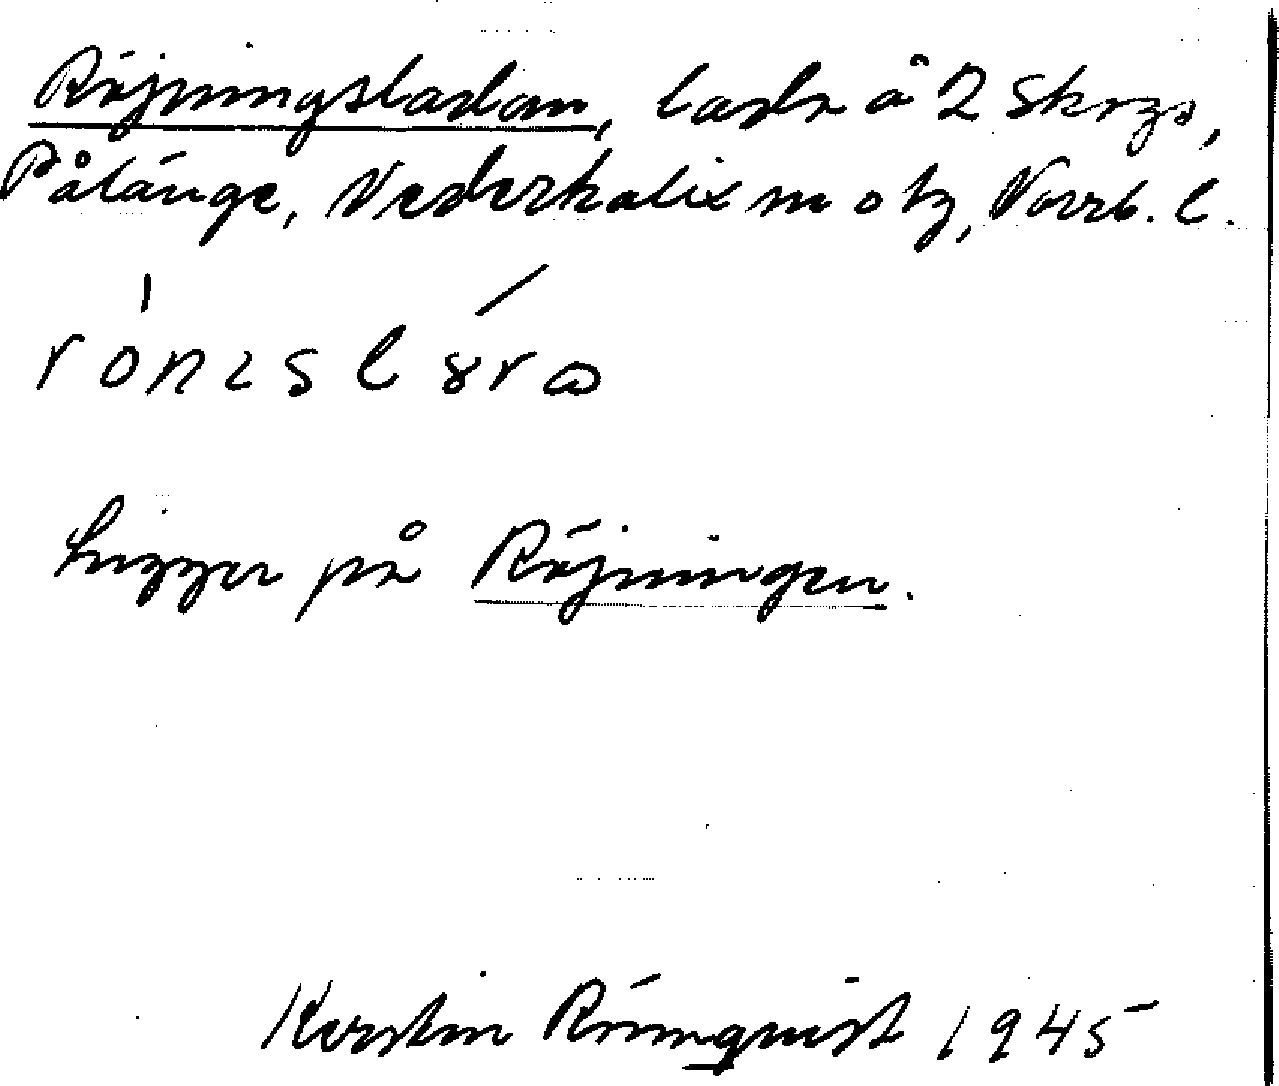 Röjningsladan, lada å 2 Skogs,
Pålänge, Nederkalix m o tg, Norrb. l.
rönıslɣra
Ligger på Röjningen.
Kerstin Rönnqvist 1945